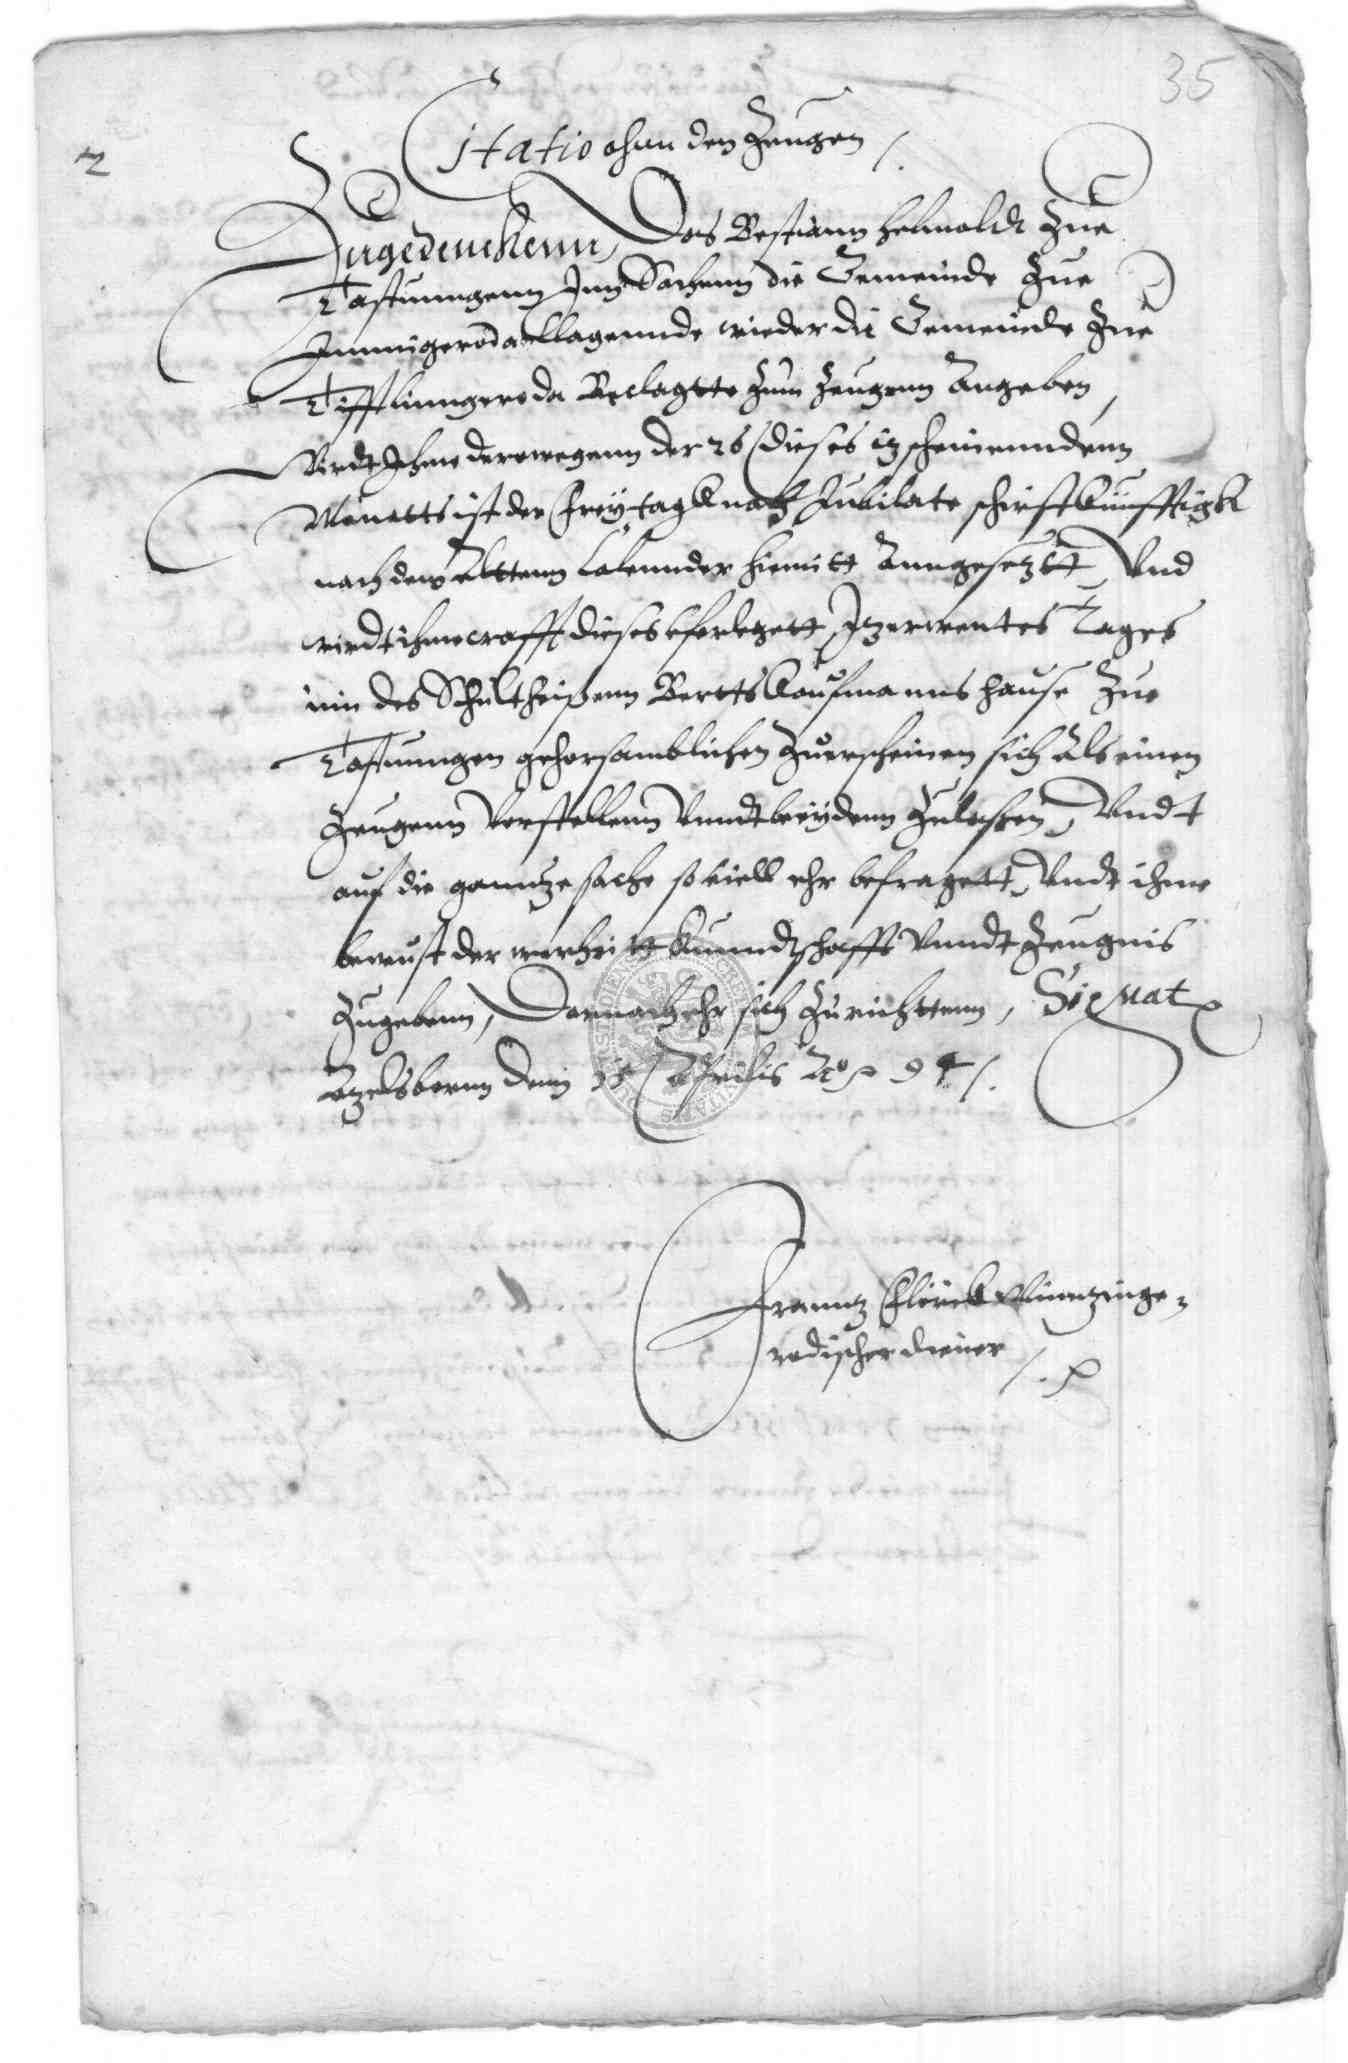 35
Citatio ahnn den Zeugen
Zugedenckenn, Das Bestiann Helmoldt Zue
Tastunngenn Jnn Sachenn die Gemeinde Zue
Jmmigeroda Klagennde wieder die Gemeinde Zue
Tifftlinngeroda Beclagtte Zum Zeugenn Angeben,
Wirdt Jhme derowegenn der 26 dieses itz scheinenndenn
Monatts ist der Freytagk nach Jubilate schirstkünfftigk
nach dem Alttenn Calennder hiemitt Anngesetztt, Vnd
wirdt ihme crafft dieses aferlegett, Jtzerwentes Tages
inn des Schultheißenn Bertts Kaufmanns Hause Zue
Tastunngen gehorsamblichen Zuerscheinen sich Als einen
Zeugenn Vorstellenn Vnndt beeydenn Zulaßen, Vndt
auf die ganntze sache so viell ehr befragett, Vndt ihme
bewust der warheitt Kunndtschafft Vnndt Zeugnis
Zugebenn, Darnach ehr sich Zurichttenn, Signat
denn 15 Aprilis Aō 94
Franntz Wintzinge-
rodischer diener